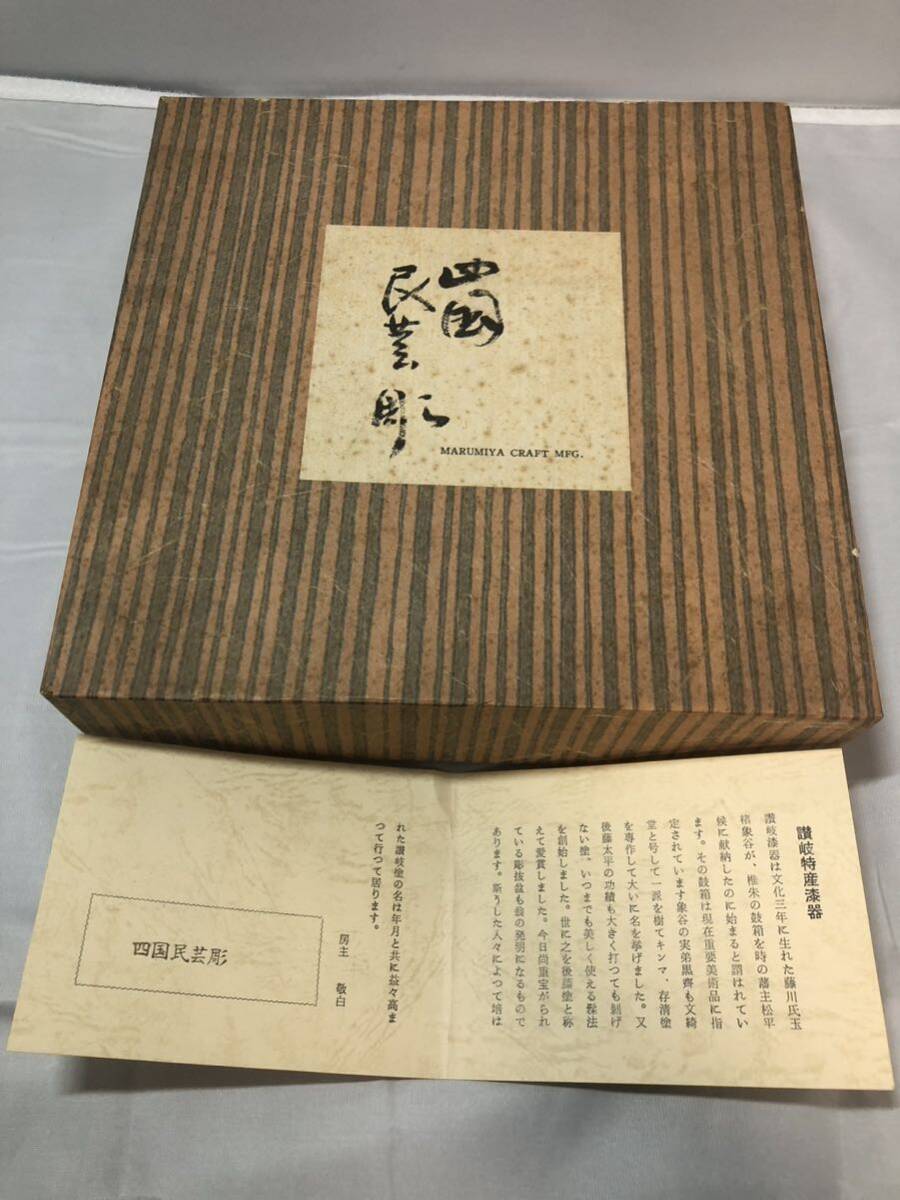 四国
民芸
彫
MARUMIYA CRAFT MFG.
讃岐特産漆器
讃岐漆器は文化三年に生れた藤川氏玉
楮象谷が、椎朱の鼓箱を時の藩主松平
候に献納したのに始まると謂はれてい
ます。その鼓箱は現在重要美術品に指
定されています象谷の実弟黒齊も文綺
堂と号して一派を樹てキンマ、存清塗
を専作して大いに名を挙げました。又
後藤太平の功績も大きく打つても剝げ
ない塗、いつまでも美しく使える髹法
を創始しました。世に之を後藤塗と称
えて愛賞しました。今日尚重宝がられ
ている彫抜盆も翁の発明になるもので
あります。斯うした人々によつて培は
れた讃岐塗の名は年月と共に益々高ま
つて行つて居ります。
房主 敬白
四国民芸彫